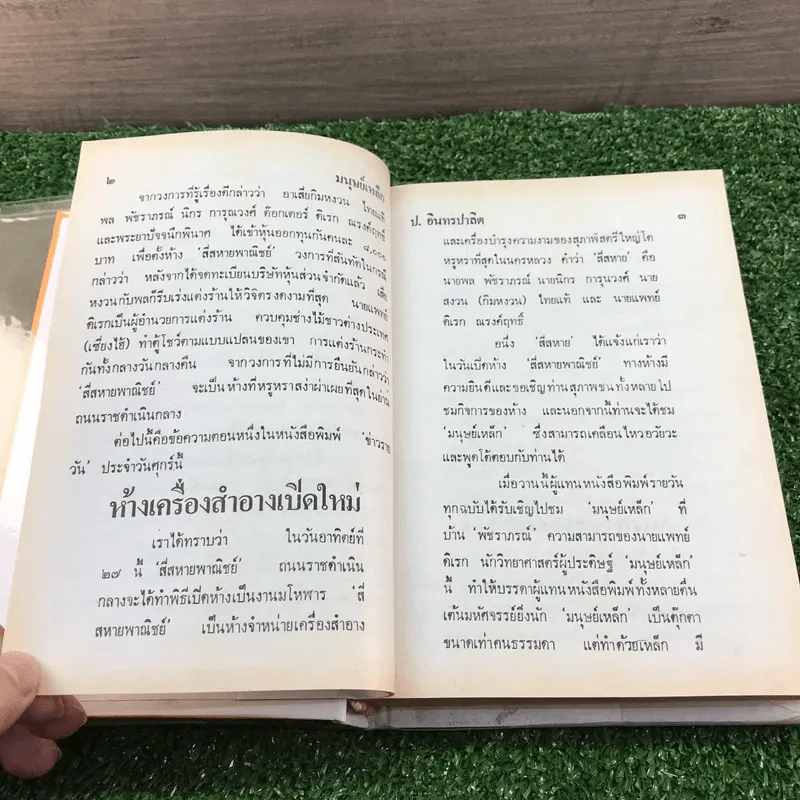 ๒ มนุษย์เหล็ก
จากวงการที่รู้เรื่องดีกล่าวว่า อาเสี่ยกิมหงวน ไทยแท้
พล พัชราภรณ์ นิกร การุณวงศ์ ด๊อกเตอร์ ดิเรก ณรงค์ฤทธิ์
และพระยาปัจจนึกพินาศ ได้เข้าหุ้นออกทุนกันคนละ ๘,๐๐๐
บาท เพื่อตั้งห้าง 'สี่สหายพาณิชย์' วงการที่สันทัดในกรณี
กล่าวว่า หลังจากได้จดทะเบียนบริษัทหุ้นส่วนจำกัดแล้ว เสี่ย
หงวนกับพลก็รีบเร่งแต่งร้านให้วิจิตรงดงามที่สุด นายแพทย์
ดิเรกเป็นผู้อำนวยการแต่งร้าน ควบคุมช่างไม้ชาวต่างประเทศ
(เซี่ยงไฮ้) ทำตู้โชว์ตามแบบแปลนของเขา การแต่งร้านกระทำ
กันทั้งกลางวันกลางคืน จากวงการที่ไม่มีการยืนยันกล่าวว่า
'สี่สหายพาณิชย์' จะเป็นห้างที่หรูหราสง่าผ่าเผยที่สุดในย่าน
ถนนราชดำเนินกลาง
ต่อไปนี้คือข้อความตอนหนึ่งในหนังสือพิมพ์ 'ข่าวราย
วัน' ประจำวันศุกร์นี้
ห้างเครื่องสำอางเปิดใหม่
เราได้ทราบว่า ในวันอาทิตย์ที่
๒๗ นี้ 'สี่สหายพาณิชย์' ถนนราชดำเนิน
กลางจะได้ทำพิธีเปิดห้างเป็นงานมโหฬาร 'สี่
สหายพาณิชย์' เป็นห้างจำหน่ายเครื่องสำอาง
ป. อินทรปาลิต ๓
และเครื่องบำรุงความงามของสุภาพสตรีใหญ่โต
หรูหราที่สุดในนครหลวง คำว่า 'สี่สหาย' คือ
นายพล พัชราภรณ์ นายนิกร การุณวงศ์ นาย
สงวน (กิมหงวน) ไทยแท้ และ นายแพทย์
ดิเรก ณรงค์ฤทธิ์
อนึ่ง 'สี่สหาย' ได้แจ้งแก่เราว่า
ในวันเปิดห้าง 'สี่สหายพาณิชย์' ทางห้างมี
ความยินดีและขอเชิญท่านสุภาพชนทั้งหลายไป
ชมกิจการของห้าง และนอกจากนี้ท่านจะได้ชม
'มนุษย์เหล็ก' ซึ่งสามารถเคลื่อนไหวอวัยวะ
และพูดโต้ตอบกับท่านได้
เมื่อวานนี้ผู้แทนหนังสือพิมพ์รายวัน
ทุกฉบับได้รับเชิญไปชม 'มนุษย์เหล็ก' ที่
บ้าน 'พัชราภรณ์' ความสามารถของนายแพทย์
ดิเรก นักวิทยาศาสตร์ผู้ประดิษฐ์ 'มนุษย์เหล็ก'
นี้ ทำให้บรรดาผู้แทนหนังสือพิมพ์ทั้งหลายตื่น
เต้นมหัศจรรย์ยิ่งนัก 'มนุษย์เหล็ก' เป็นตุ๊กตา
ขนาดเท่าคนธรรมดา แต่ทำด้วยเหล็ก มี